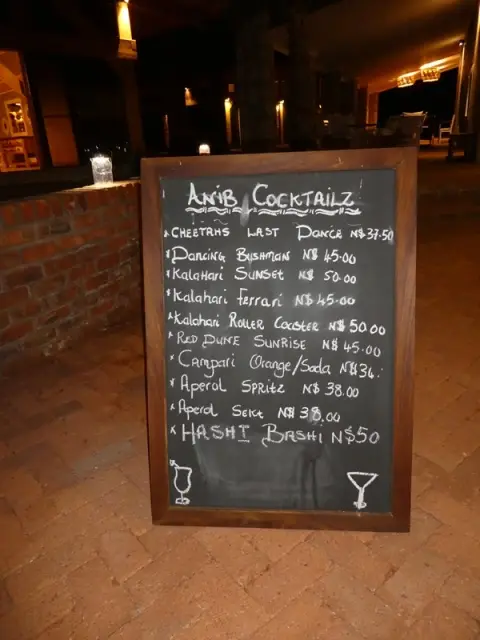 ANIB COCKTAILZ
* CHEETAHS LAST DANCE N$ 37.50
* Dancing Bushman N$ 45.00
* Kalahari Sunset N$ 50.00
* Kalahari Ferrari N$ 45.00
* Kalahari Roller Coaster N$ 50.00
* RED DUNE SUNRISE N$ 45.00
* Campari Orange/Soda N$ 36.
* Aperol Spritz N$ 38.00
* Aperol Sekt N$ 38.00
* HASHI BASHI N$50